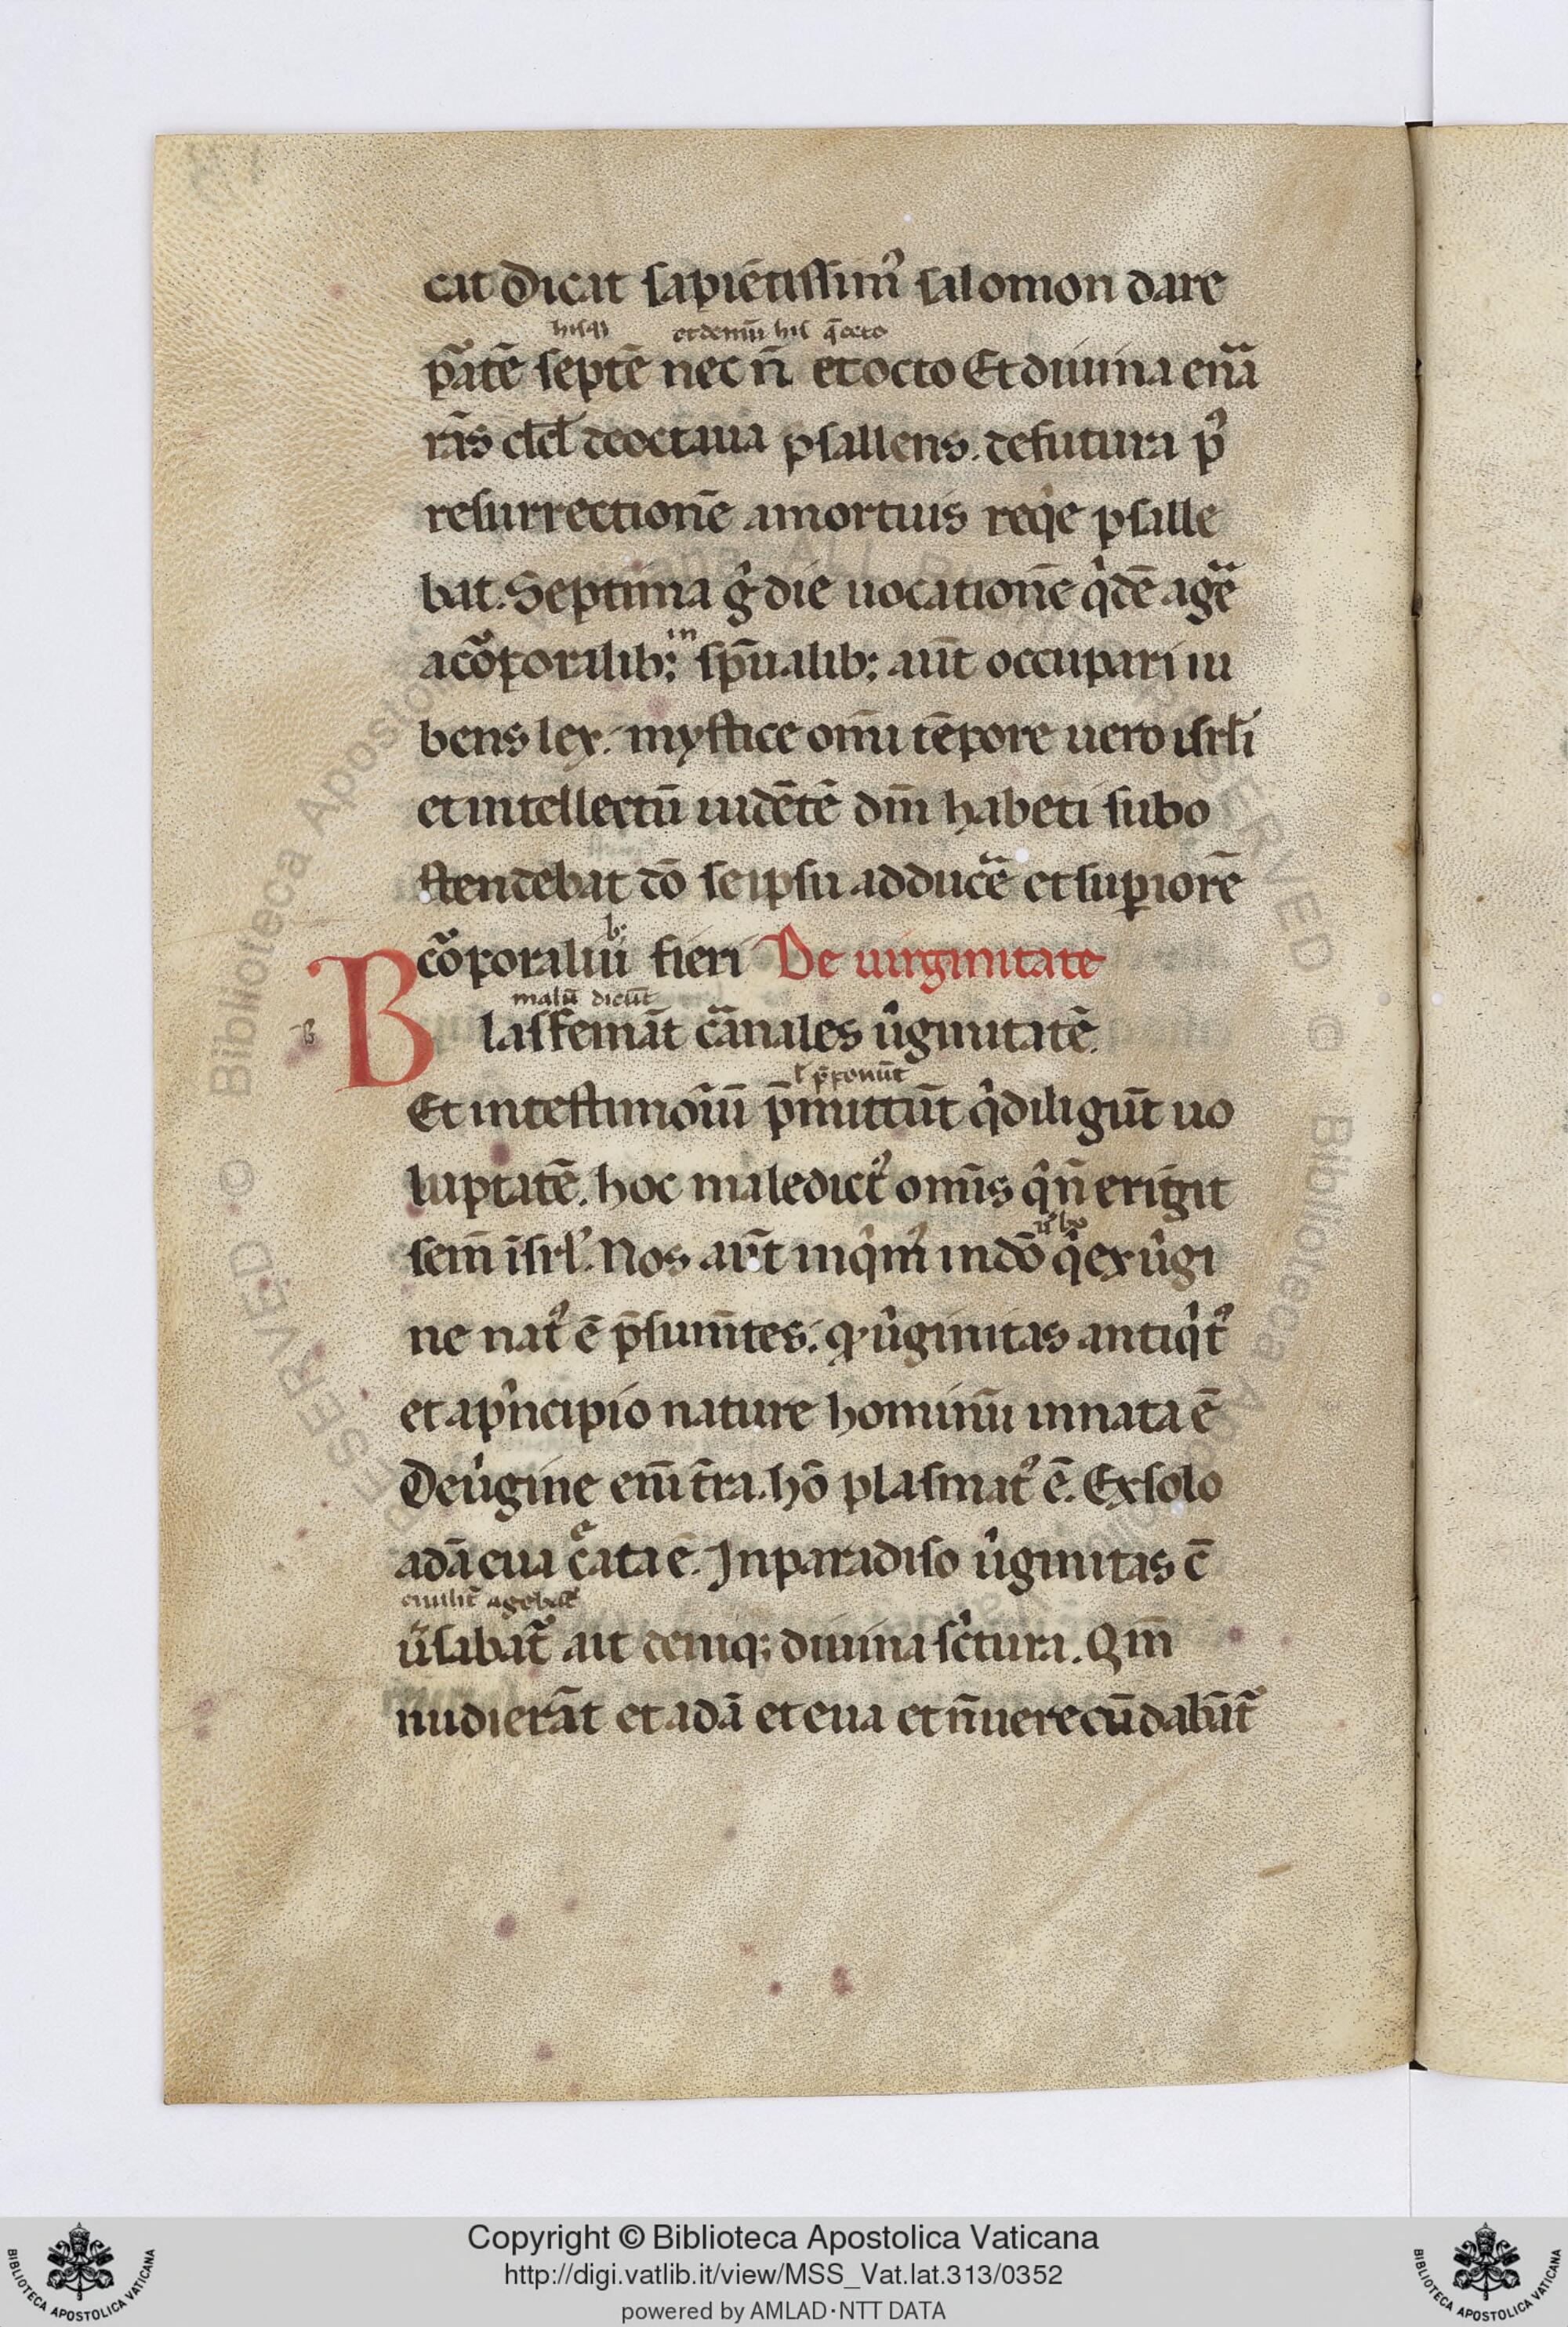 cat Dicat sapiētissimꝰ salomon dare
hisq̄ et demū his q̄ octo
p̄atē septē nec n̄ et octo Et diuina enā
rās dd̄ de octaua psallens. de futura pꝰ
resurrectionē a mortuis reqͥe psalle
bat. Septima gͦ die uocationē qͥdē agē
in
a cōꝑoralib; sp̄ualib; aūt occupari iu
bens lex. mystice om̄i tēpore uero isrl̄i
et intellectū uidētē dm̄ habēti subo
stendebat dō se ipsū adducē et suꝑiorē
b;
cōꝑoraliū fieri De uirginitate
malū dicūt
Blasfemāt cānales uͥginitatē.
ł p̄ponūt
Et in testimoīuī p̄mittūt qͥ diligūt uo
luptatē. hoc maledictꝰ om̄is qͥ n̄ erigit
sem̄ īsrl. Nos aūt inqͥmꝰ in dō
uͦbo
qͥ ex uͥgi
ne natꝰ ē p̄sum̄tes. ꝙ uͥginitas antiqͥtꝰ
et a pͥncipio nature hominū innata ē
De uͥgine eni t̄ra. hō plasmatꝰ ē. Ex solo
adā eua c̄ata ē. In paradiso uͥginitas ē
ciuilit̄ agebat̄
ūsabat̄ ait deniq; diuina sc̄tura. Qm̄
nudi erāt et adā et eua et n̄ uerecūdabāt̄
Copyright © Biblioteca Apostolica Vaticana
http://digi.vatlib.it/view/MSS_Vat.lat.313/0352
powered by AMLAD·NTT DATA
BIBLIOTECA APOSTOLICA VATICANA
BIBLIOTECA APOSTOLICA VATICANA